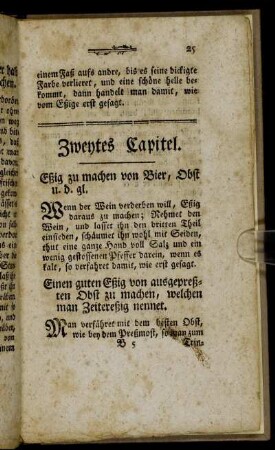 25
einem Faß aufs andre, bis es seine dickigte
Farbe verlieret, und eine schöne helle be-
kommt, dann handelt man damit, wie
vom Eßige erst gesagt.
Zweytes Capitel.
Eßig zu machen von Bier, Obst
u. d. gl.
Wenn der Wein verderben will, Eßig
daraus zu machen; Nehmet den
Wein, und lasset ihn den dritten Theil
einsieden, schäumet ihn wohl mit Seiden,
thut eine ganze Hand voll Salz und ein
wenig gestossenen Pfeffer darein, wenn es
kalt, so verfahret damit, wie erst gesagt.
Einen guten Eßig von ausgepreß-
ten Obst zu machen, welchen
man Zeitereßig nennet.
Man verfähret mit dem besten Obst,
wie bey dem Preßmost, so man zum
B 5
Trin-